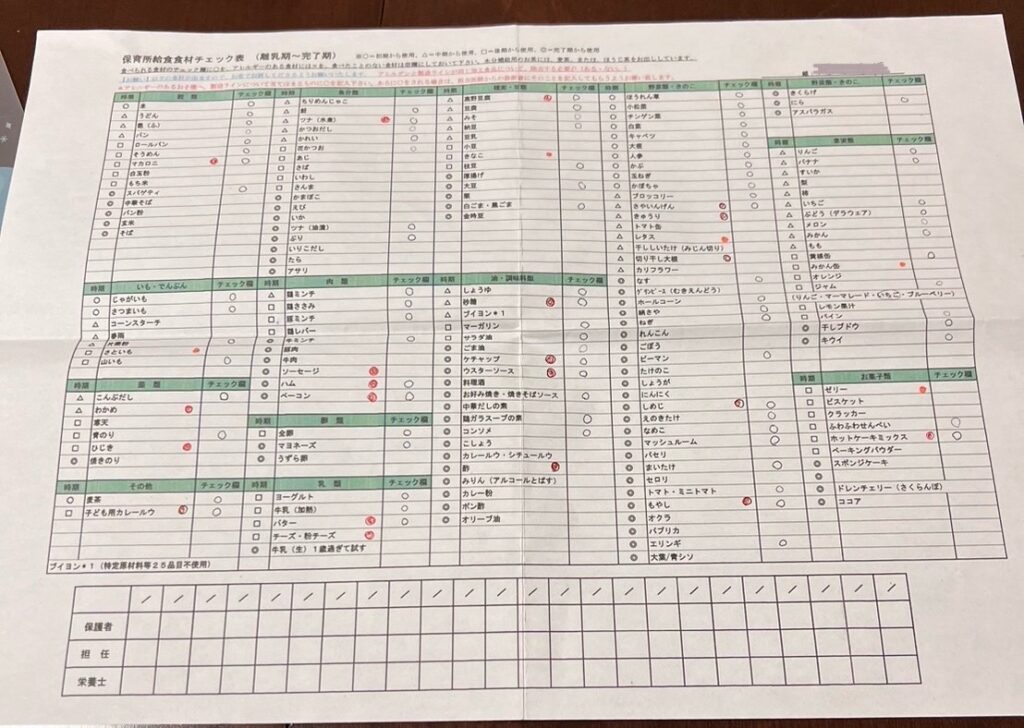 保育所給食食材チェック表 (離乳期～完了期) ※○=初期から使用、△=中期から使用、□=後期から使用、◎=完了期から使用
時期 穀類 チェック欄
○ 米 ○
△ うどん ○
△ 麩(ふ) ○
△ パン
□ ロールパン
□ そうめん
□ マカロニ
□ 白玉粉
□ もち米
◎ スパゲティ ○
◎ 中華そば
◎ パン粉
◎ 玄米
◎ そば
時期 いも・でんぷん チェック欄
○ じゃがいも ○
○ さつまいも ○
△ コーンスターチ
△ 春雨
□ さといも
□ 山いも ○
時期 藻類 チェック欄
△ こんぶだし ○
△ わかめ
□ 寒天
□ 青のり ○
□ ひじき
◎ 焼きのり
時期 その他 チェック欄
○ 麦茶 ○
□ 子ども用カレールウ ○
ブイヨン*1(特定原材料等25品目不使用)
時期 魚介類 チェック欄
△ ちりめんじゃこ ○
△ 鮭 ○
△ ツナ(水煮) ○
△ かつおだし ○
△ かれい ○
□ 花かつお ○
□ あじ
□ さば
□ いわし
□ さんま
◎ かまぼこ
◎ えび
◎ いか
◎ ツナ(油漬) ○
◎ ぶり ○
◎ いりこだし
◎ たら
◎ アサリ
時期 肉類 チェック欄
△ 鶏ミンチ ○
□ 鶏ささみ ○
□ 豚ミンチ ○
□ 鶏レバー
◎ 豚肉
◎ 牛肉 ○
◎ ソーセージ
◎ ハム ○
◎ ベーコン ○
時期 卵類 チェック欄
□ 全卵 ○
◎ マヨネーズ ○
◎ うずら卵
時期 乳類 チェック欄
□ ヨーグルト ○
□ 牛乳(加熱) ○
□ バター ○
□ チーズ・粉チーズ
◎ 牛乳(生)1歳過ぎて試す
チェック欄
△ 高野豆腐 ○
△ 豆腐 ○
△ みそ ○
△ 納豆 □
△ 豆乳
□ 小豆
□ きなこ
□ 枝豆 ○
◎ 厚揚げ
◎ 大豆 ○
◎ 栗
◎ 白ごま・黒ごま ○
◎ 金時豆
時期 油・調味料類 チェック欄
△ しょうゆ ○
△ 砂糖 ○
△ ブイヨン*1
□ マーガリン ○
□ サラダ油 ○
□ ごま油 ○
◎ ケチャップ ○
◎ ウスターソース ○
◎ 料理酒
◎ お好み焼き・焼きそばソース ○
◎ 中華だしの素
◎ 鶏ガラスープの素 ○
◎ コンソメ ○
◎ こしょう
◎ カレールウ・シチュールウ
◎ 酢
◎ みりん(アルコールとばす)
◎ カレー粉
◎ ポン酢
◎ オリーブ油
時期 野菜類・きのこ チェック欄
○ ほうれん草 ○
○ 小松菜 ○
○ チンゲン菜 ○
○ 白菜 ○
○ キャベツ ○
○ 大根 ○
○ 人参 ○
○ かぶ ○
○ 玉ねぎ ○
○ かぼちゃ ○
△ ブロッコリー ○
△ さやいんげん ○
△ きゅうり ○
△ トマト缶
△ レタス
△ 干ししいたけ(みじん切り)
△ 切り干し大根
△ カリフラワー
◎ なす ○
◎ グリンピース(むきえんどう)
◎ ホールコーン ○
◎ 絹さや ○
◎ ねぎ ○
◎ れんこん
◎ ごぼう
◎ ピーマン ○
◎ たけのこ
◎ しょうが
◎ にんにく
◎ しめじ ○
◎ えのきたけ ○
◎ なめこ ○
◎ マッシュルーム ○
◎ パセリ
◎ まいたけ ○
◎ セロリ
◎ トマト・ミニトマト ○
◎ もやし ○
◎ オクラ
◎ パプリカ
◎ エリンギ ○
◎ 大葉/青シソ
時期 野菜類・きのこ チェック欄
◎ きくらげ
◎ にら ○
◎ アスパラガス
時期 果実類 チェック欄
△ りんご ○
△ バナナ ○
△ すいか
△ 梨
△ 柿
△ いちご ○
△ ぶどう(デラウェア) ○
△ メロン ○
△ みかん ○
△ もも
□ 黄桃缶 ○
□ みかん缶
□ オレンジ
□ ジャム ○
(りんご・マーマレード・いちご・ブルーベリー)
□ レモン果汁
□ パイン ○
◎ 干しブドウ ○
◎ キウイ ○
時期 お菓子類 チェック欄
□ ゼリー
□ ビスケット
□ クラッカー
□ ふわふわせんべい ○
□ ホットケーキミックス ○
□ ベーキングパウダー
◎ スポンジケーキ
◎ ドレンチェリー(さくらんぼ)
◎ ココア
/ / / / / / / / / / / / / / / / /
保護者
担任
栄養士